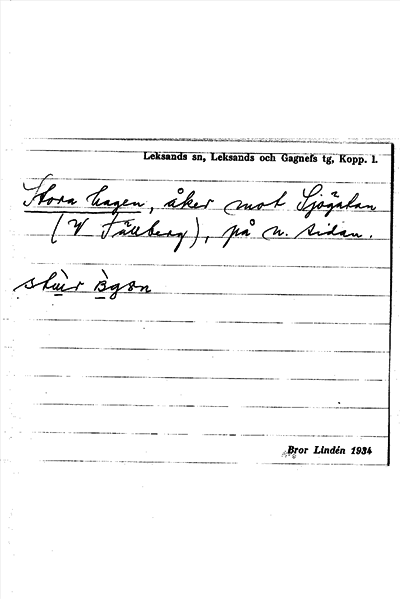 Leksands sn, Leksands och Gagnefs tg, Kopp. 1.
Stora hagen, åker mot Sjögatan
(V Tällberg), på n. sidan.
Bror Lindén 1934